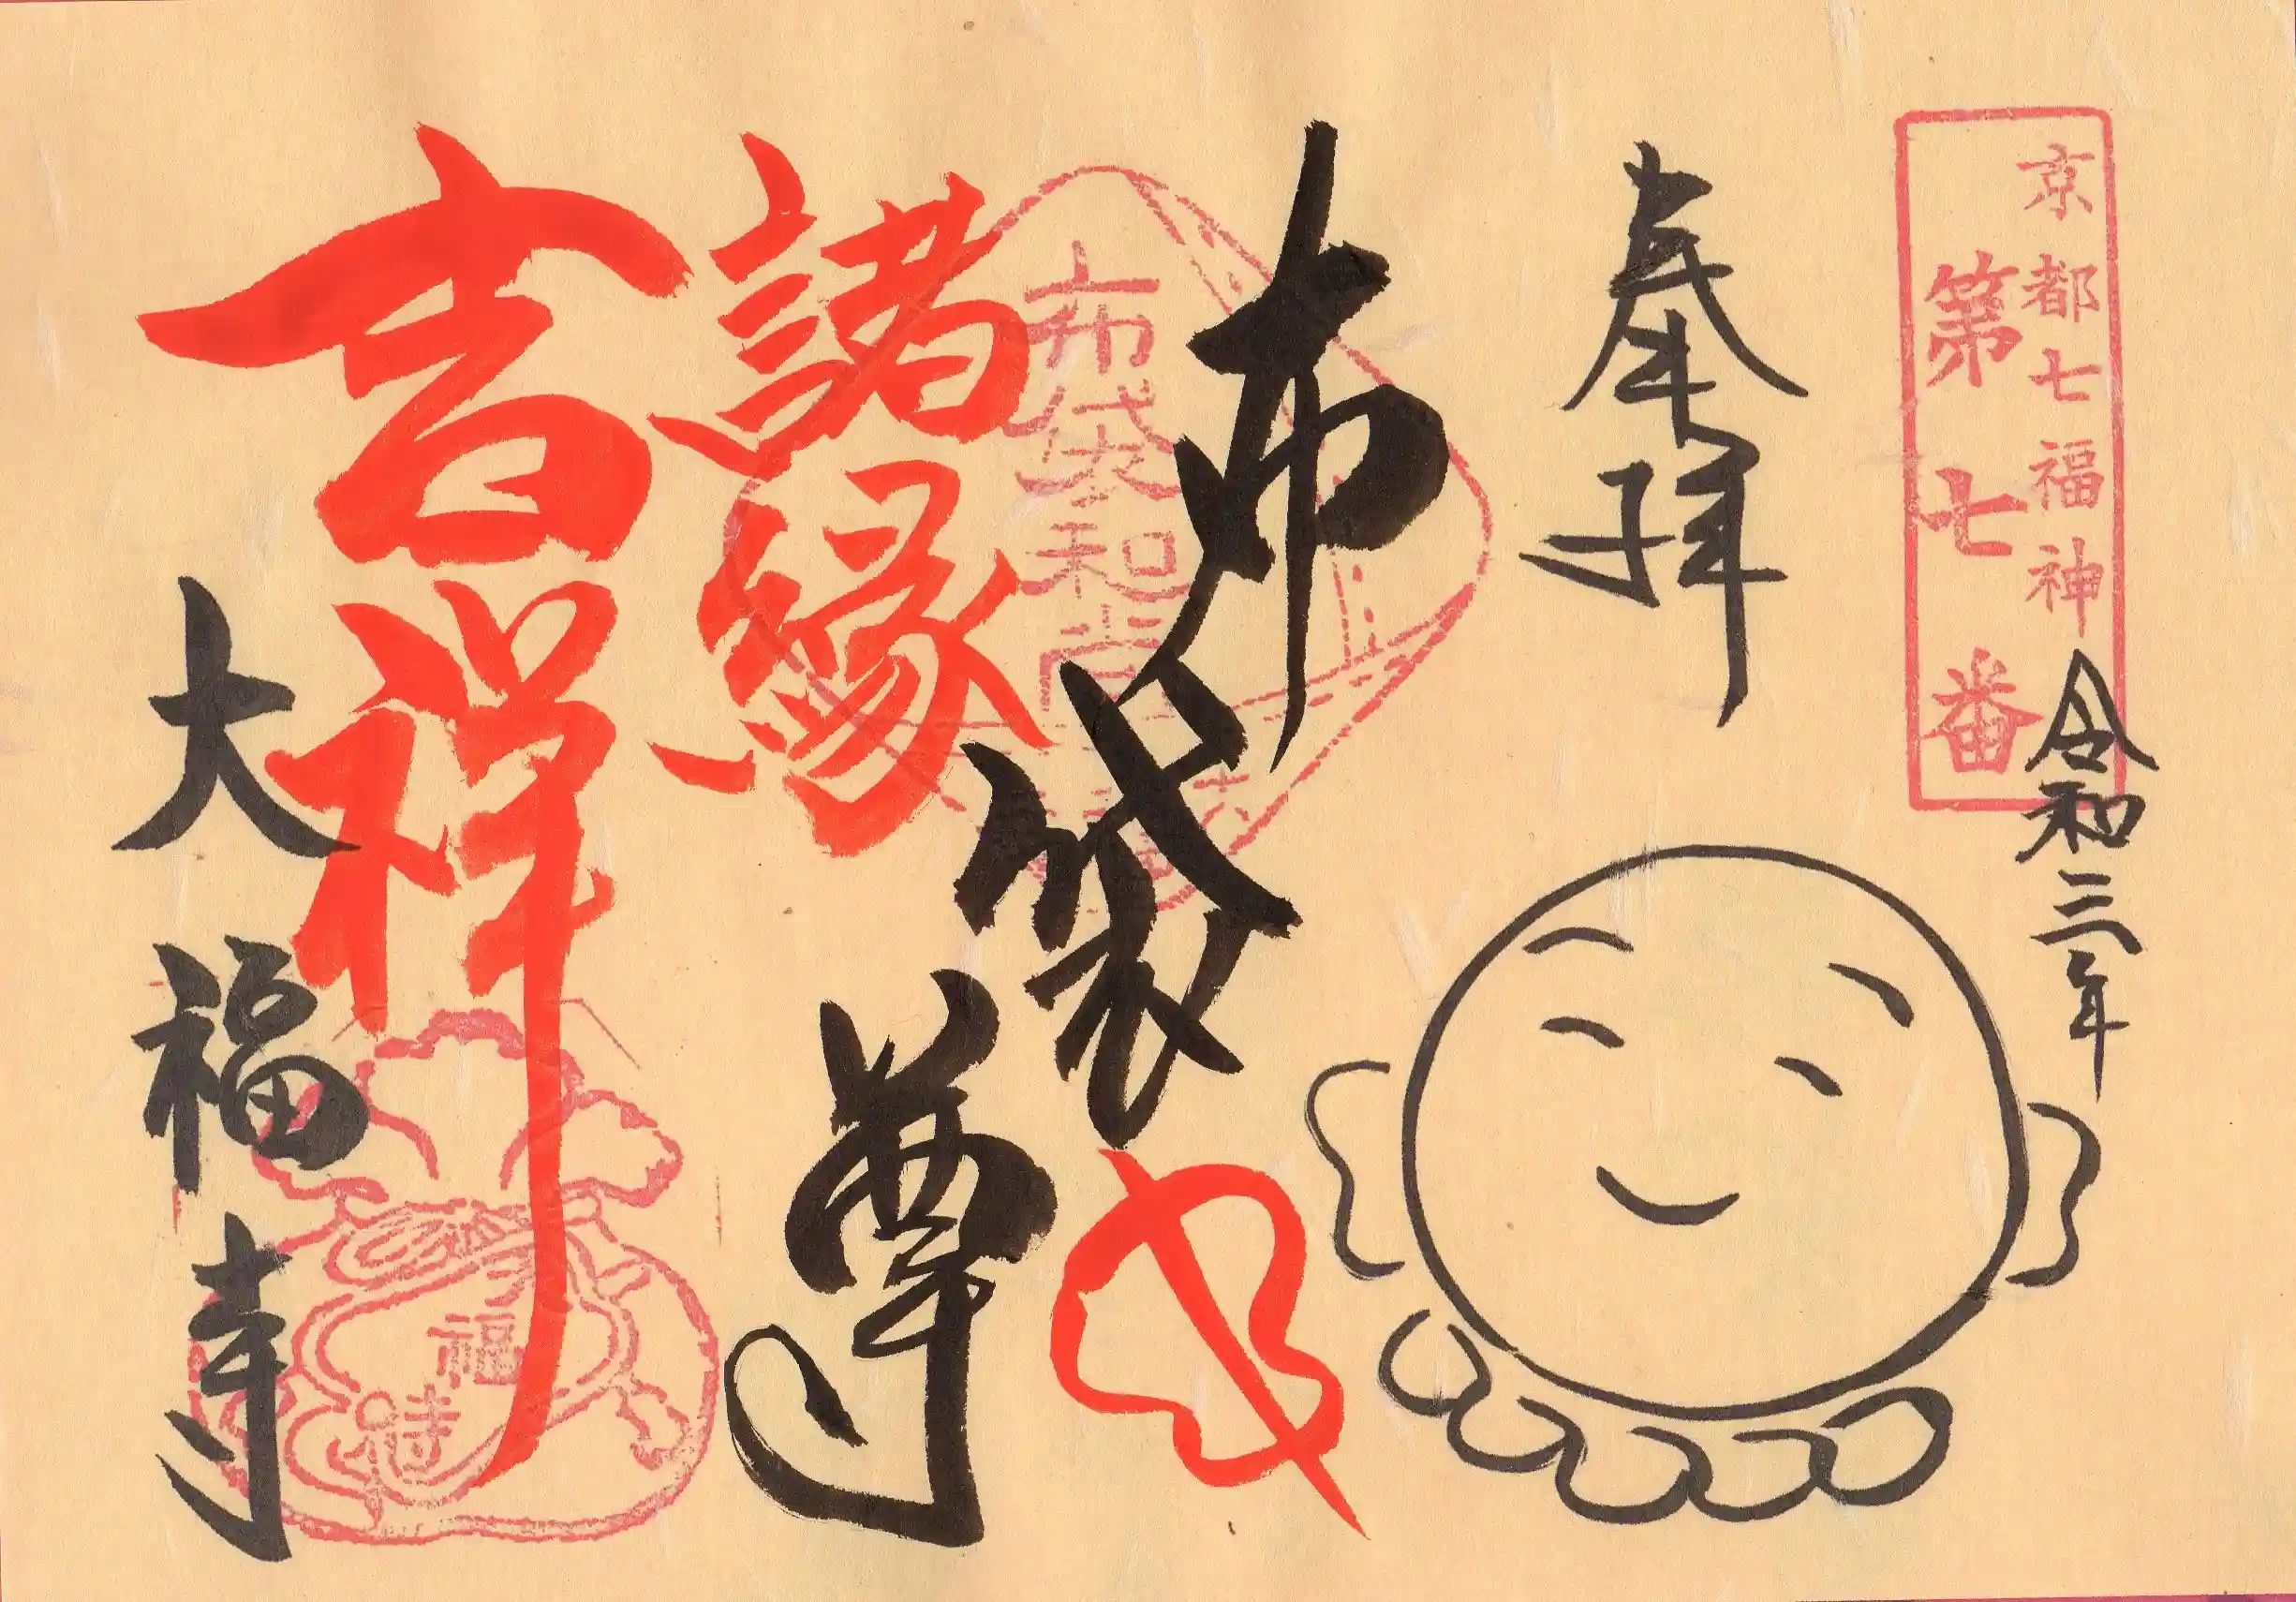 京都七福神
第七番
令和三年
奉拝
布袋尊
布袋和尚
諸縁
吉祥
大福寺